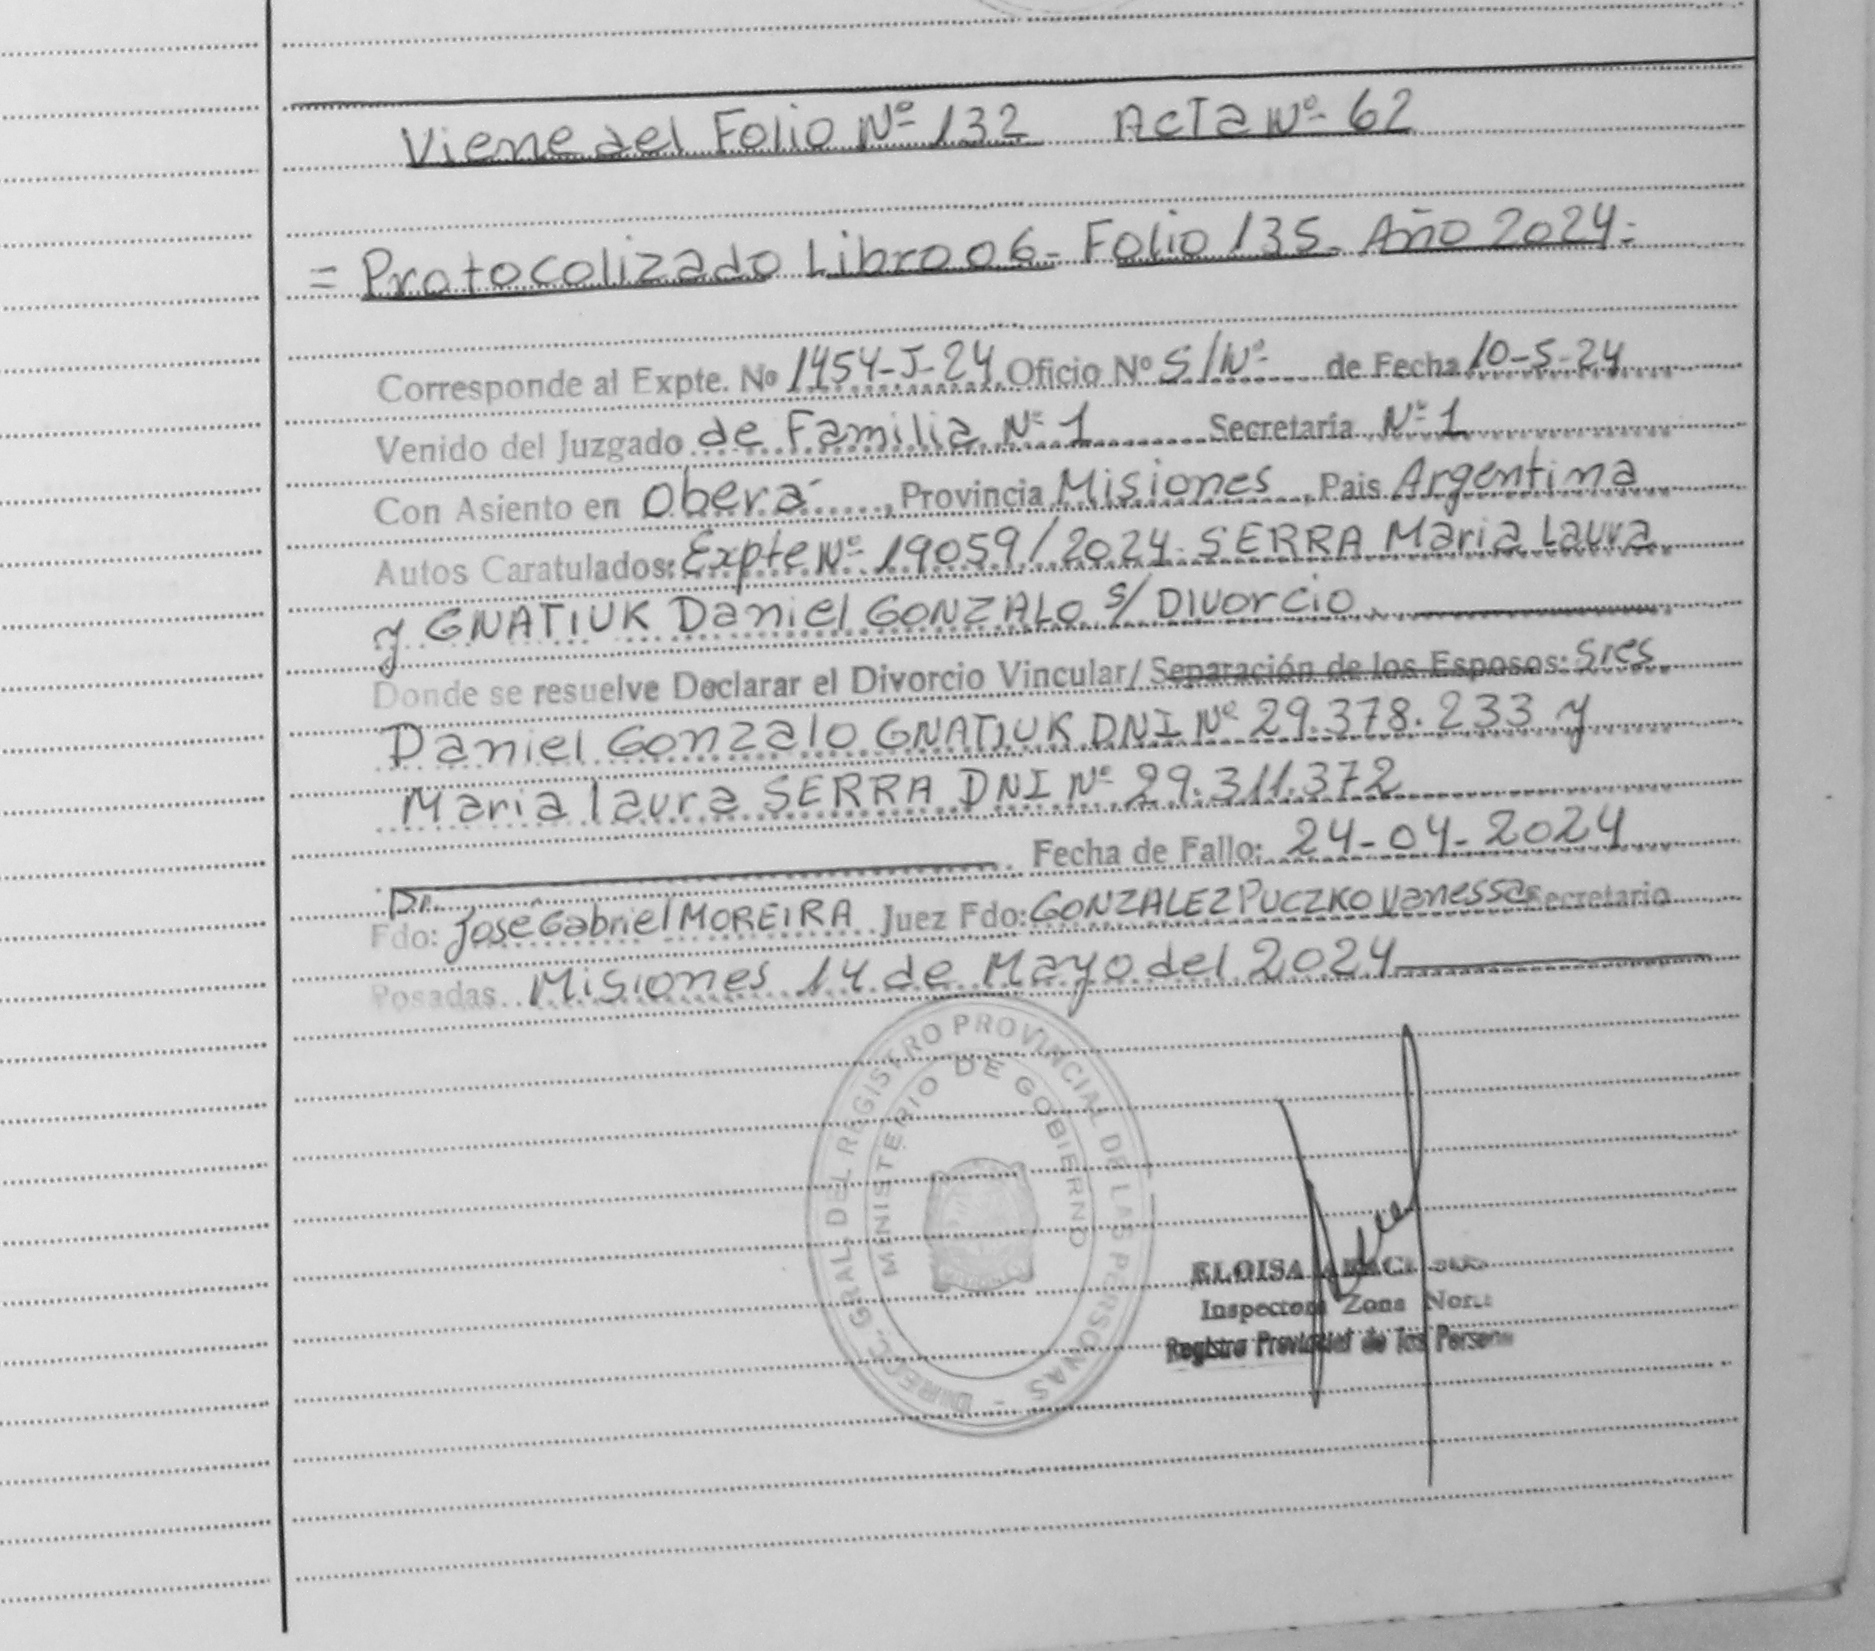 Viene del Folio Nº 132 Acta Nº 62
= Protocolizado Libro 06- Folio 135- Año 2024-
Corresponde al Expte. Nº 1454-J-24 Oficio Nº S/Nº de Fecha 10-5-24
Venido del Juzgado de Familia Nº 1 Secretaría Nº 1
Con Asiento en Oberá, Provincia Misiones, Pais Argentina
Autos Caratulados: Expte Nº 19059/2024. SERRA Maria Laura
y GNATIUK Daniel GONZALO s/ Divorcio
Donde se resuelve Declarar el Divorcio Vincular/ Separación de los Esposos: Sres.
Daniel Gonzalo GNATIUK DNI Nº 29.378.233 y
Maria laura SERRA DNI Nº 29.311.372
Fecha de Fallo: 24-04-2024
Fdo: Dr. José Gabriel MOREIRA Juez Fdo: GONZALEZ PUCZKO Vanessa Secretario
Posadas Misiones 14 de Mayo del 2024
DIREC. GRAL. DEL REGISTRO PROVINCIAL DE LAS PERSONAS -
MINISTERIO DE GOBIERNO
ELOISA
Inspectora Zona Norte
Registro Provincial de las Persona